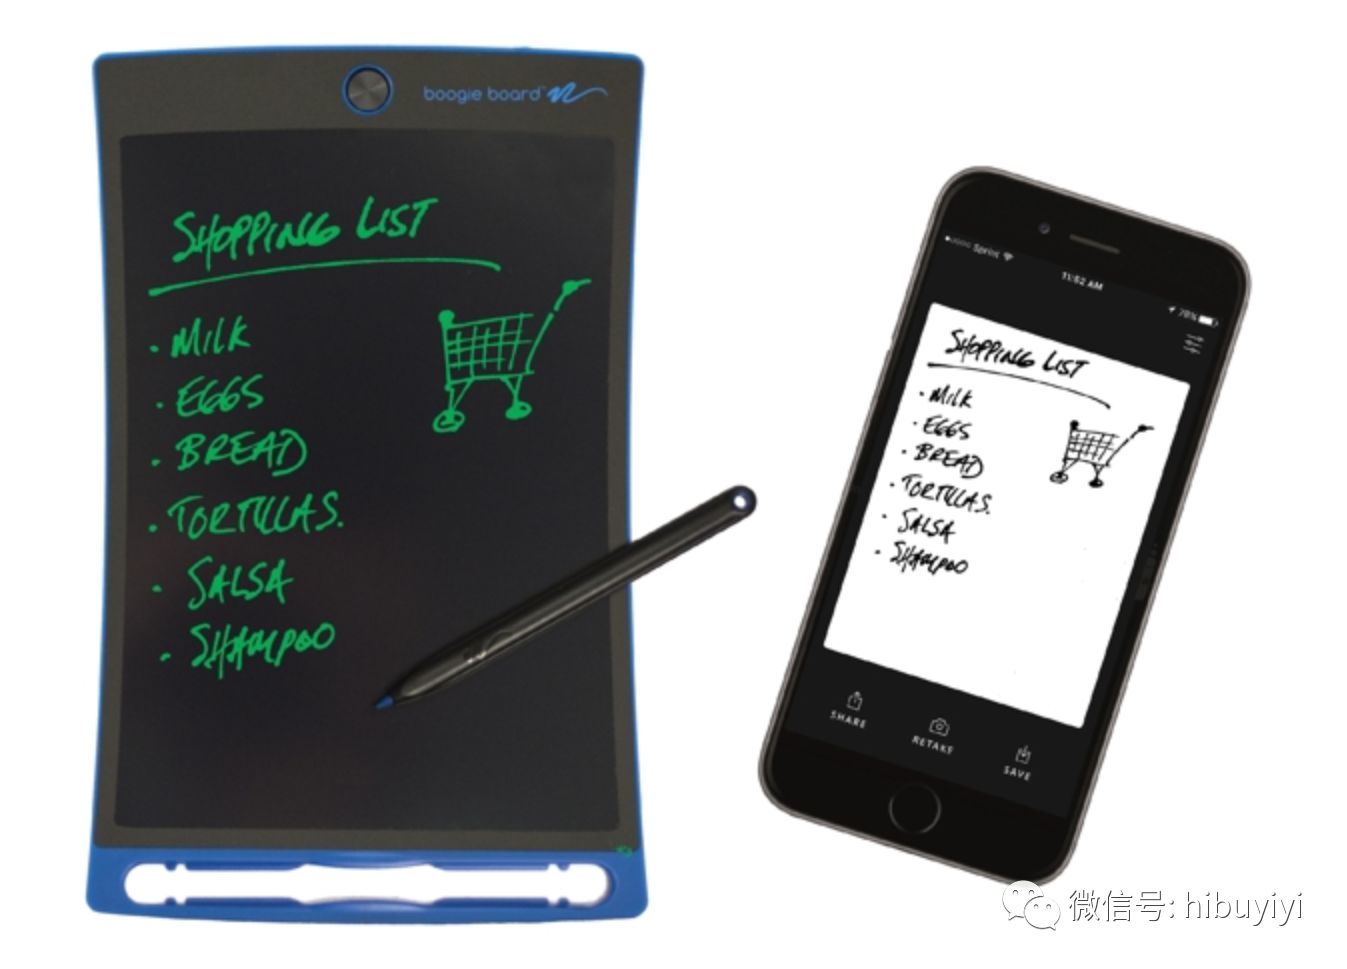 boogie board™
SHOPPING LIST
• MILK
• EGGS
• BREAD
• TORTILLAS.
• SALSA
• SHAMPOO
Sprint
11:52 AM
78%
SHOPPING LIST
• MILK
• EGGS
• BREAD
• TORTILLAS.
• SALSA
• SHAMPOO
SHARE
RETAKE
SAVE
微信号: hibuyiyi